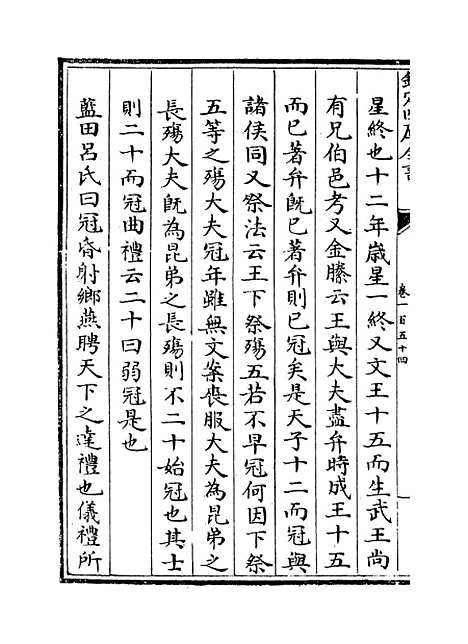 欽定四庫全書
卷一百五十四
星終也十二年嵗星一終又文王十五而生武王尚
有兄伯邑考又金縢云王與大夫盡弁時成王十五
而已著弁既已著弁則已冠矣是天子十二而冠與
諸侯同又祭法云王下祭殤五若不早冠何因下祭
五等之殤大夫冠年雖無文案喪服大夫為昆弟之
長殤大夫既為昆弟之長殤則不二十始冠也其士
則二十而冠曲禮云二十曰弱冠是也
藍田呂氏曰冠昏射鄉燕聘天下之達禮也儀禮所